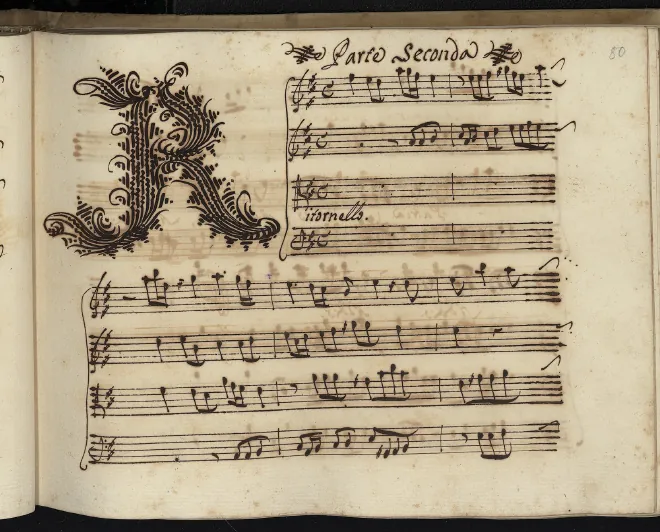 Parte Seconda
80
R
itornello.